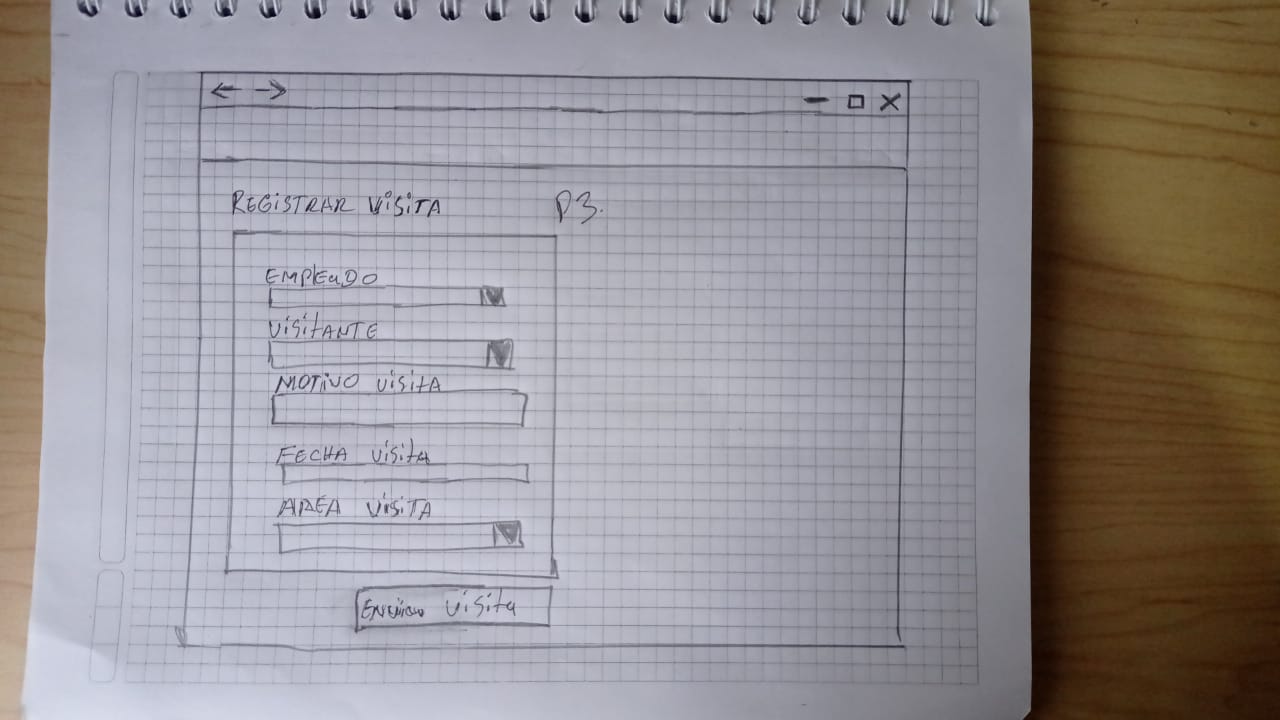 REGISTRAR VISITA
P3.
EMPLEADO
VISITANTE
MOTIVO VISITA
FECHA VISITA
AREA VISITA
Visita